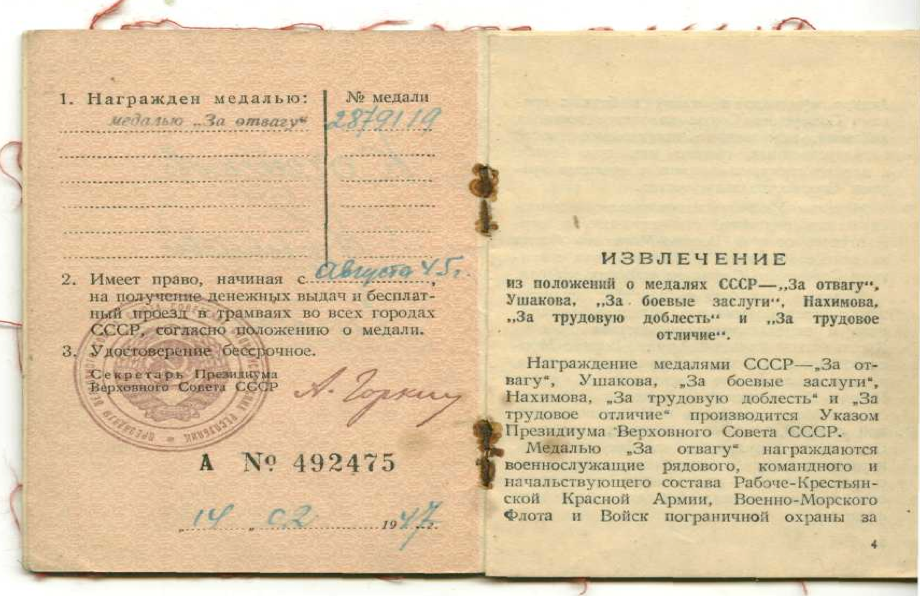 1. Награжден медалью:
№ медали
медалью „За отвагу“
2879119
2. Имеет право, начиная с Августа 45 г.,
на получение денежных выдач и бесплат-
ный проезд в трамваях во всех городах
СССР, согласно положению о медали.
3. Удостоверение бессрочное.
Секретарь Президиума
Верховного Совета СССР
А. Горкин
А № 492475
„14“ 02 1947 г.
ИЗВЛЕЧЕНИЕ
из положений о медалях СССР—„За отвагу“,
Ушакова, „За боевые заслуги“, Нахимова,
„За трудовую доблесть“ и „За трудовое
отличие“.
Награждение медалями СССР—„За от-
вагу“, Ушакова, „За боевые заслуги“,
Нахимова, „За трудовую доблесть“ и „За
трудовое отличие“ производится Указом
Президиума Верховного Совета СССР.
Медалью „За отвагу“ награждаются
военнослужащие рядового, командного и
начальствующего состава Рабоче-Крестьян-
ской Красной Армии, Военно-Морского
Флота и Войск пограничной охраны за
4